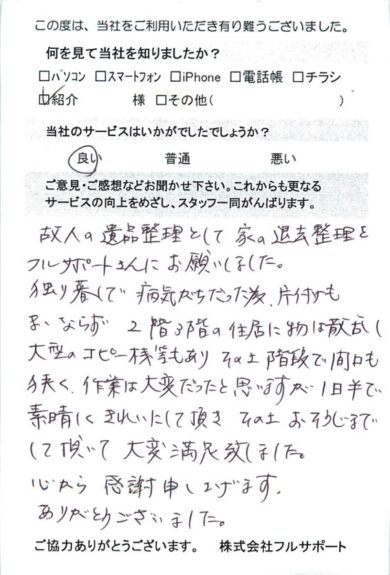 この度は、当社をご利用いただき有り難うございました。
何を見て当社を知りましたか？
□パソコン □スマートフォン □iPhone □電話帳 □チラシ
☑紹介 様 □その他( )
当社のサービスはいかがでしたでしょうか？
良い 普通 悪い
ご意見・ご感想などお聞かせ下さい。これからも更なる
サービスの向上をめざし、スタッフ一同がんばります。
故人の遺品整理として家の退去整理を
フルサポートさんにお願いしました。
独り暮しで病気がちだった為、片付けも
ままならず 2階3階の住居に物は散乱し
大型のコピー機等もあり その上 階段で間口も
狭く、作業は大変だったと思いますが 1日半で
素晴しくきれいにして頂き その上 おそうじまで
して頂いて 大変満足致しました。
心から 感謝申し上げます。
ありがとうございました。
ご協力ありがとうございます。 株式会社フルサポート